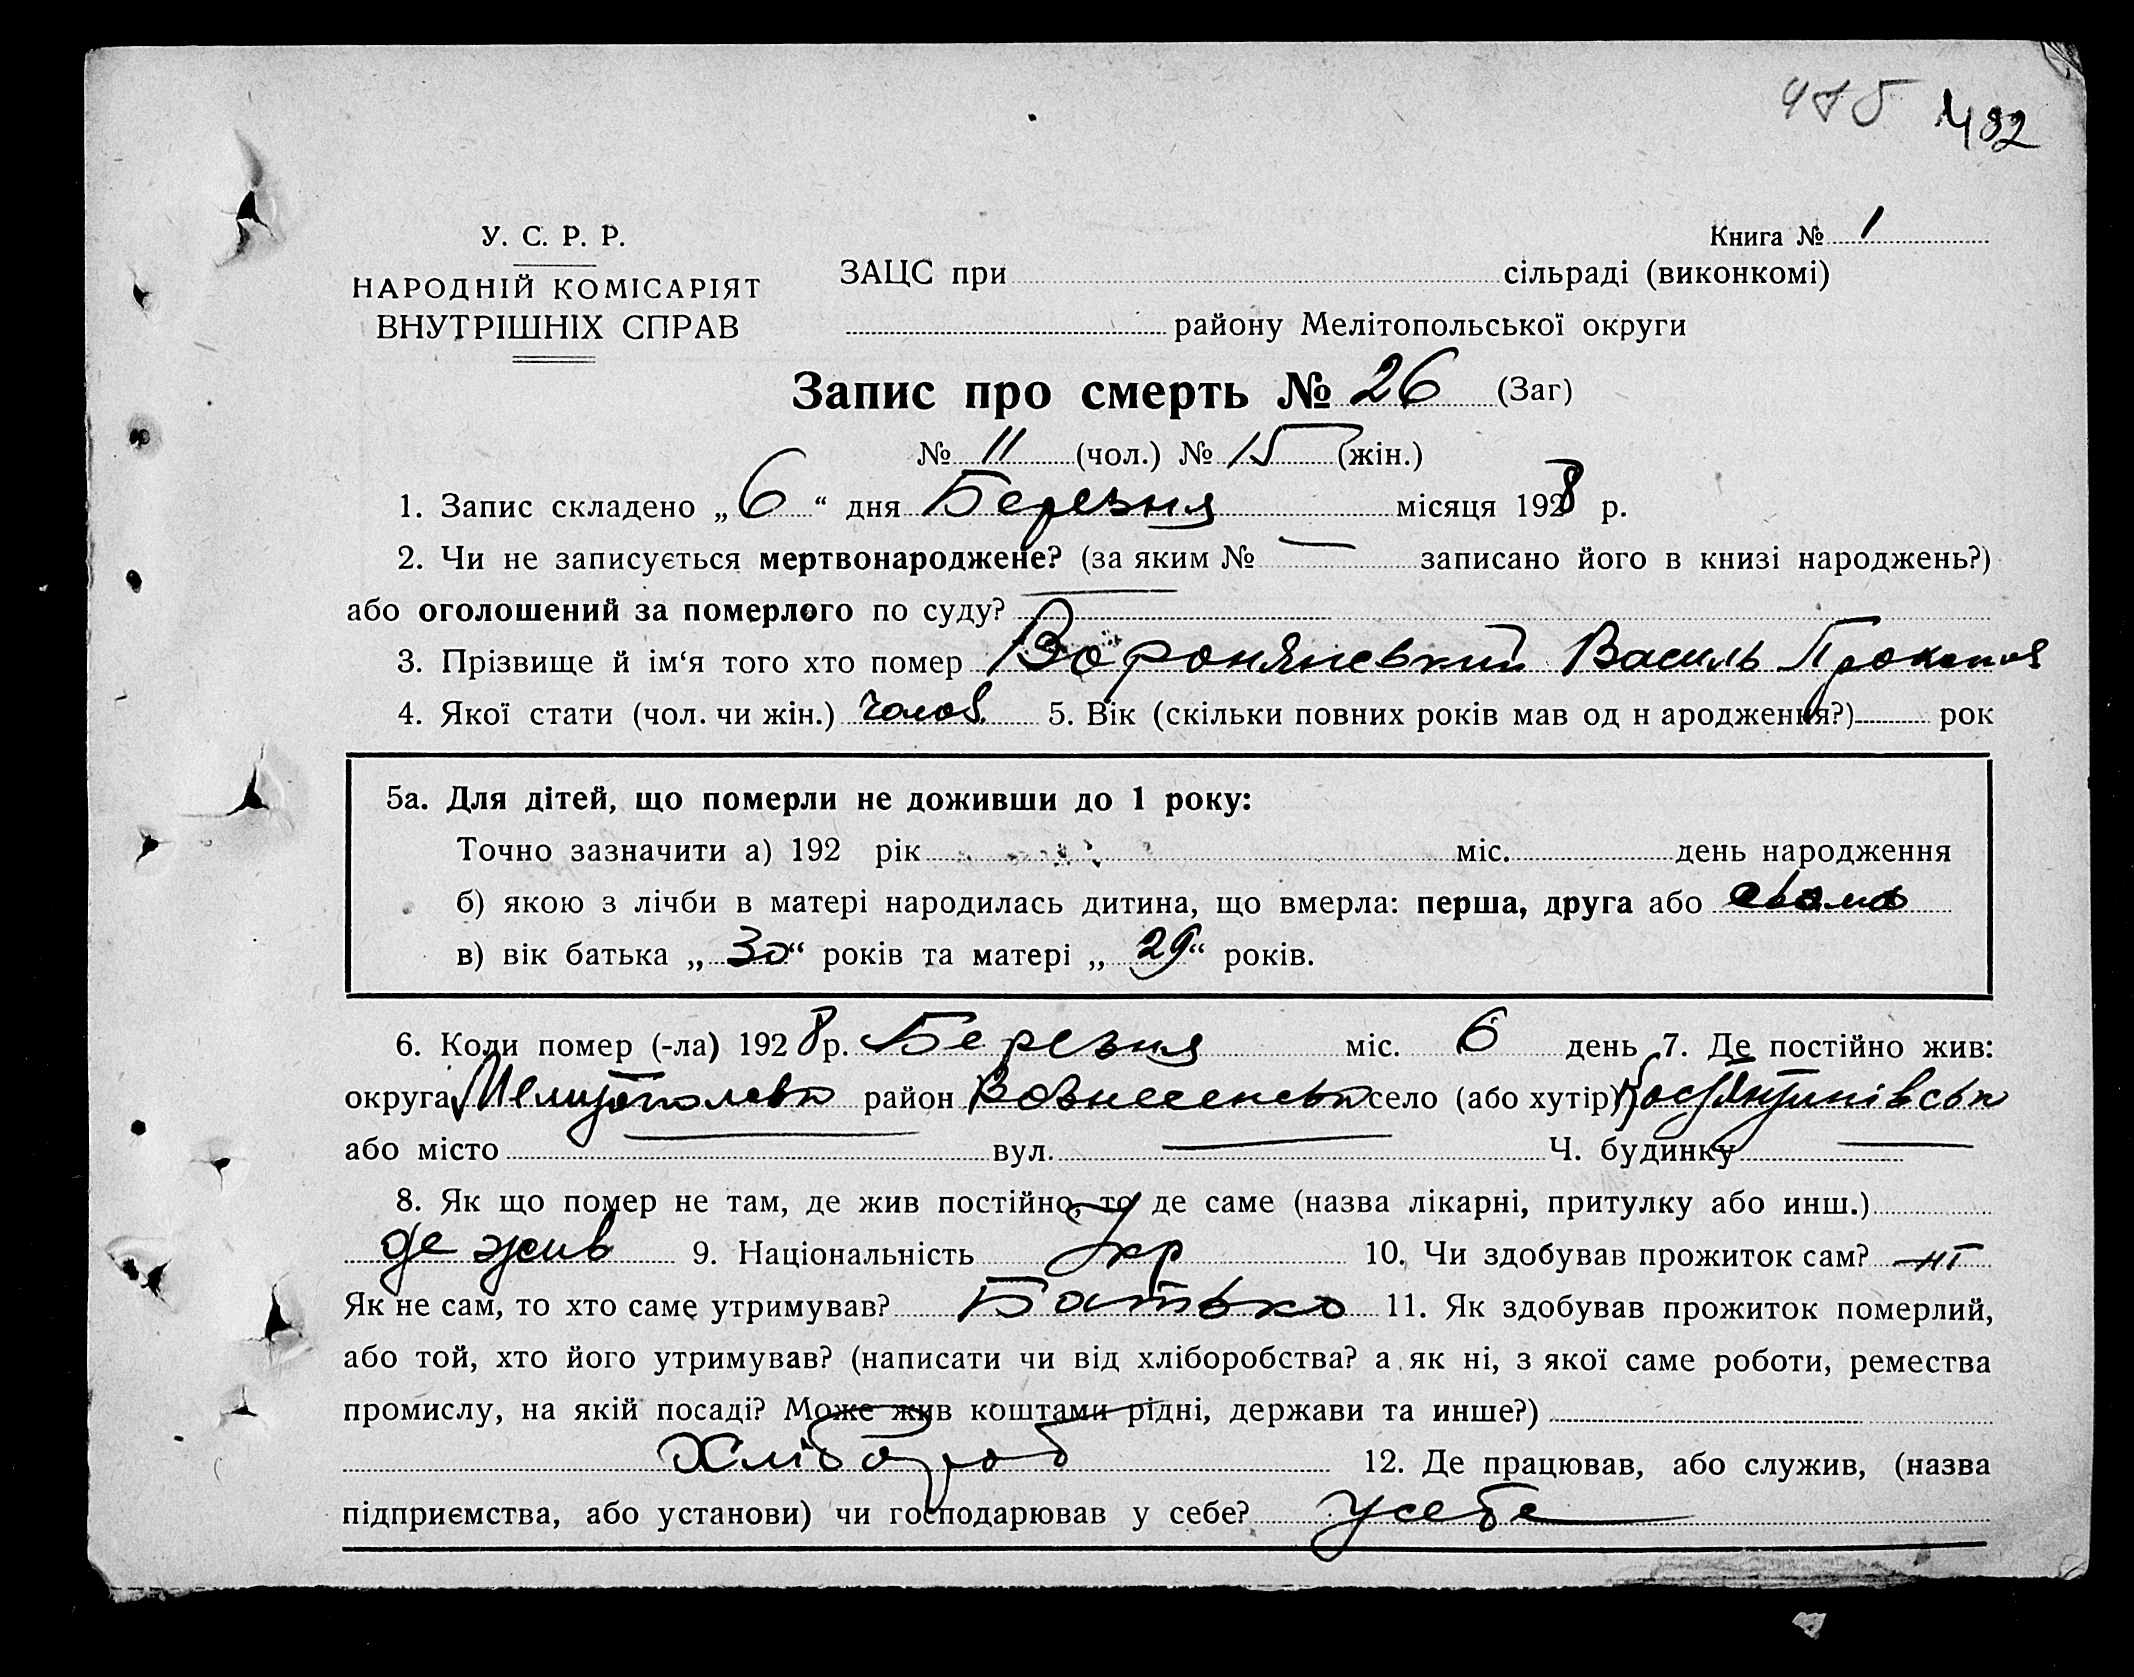 482
У. С. Р. Р.
НАРОДНІЙ КОМІСАРІЯТ
ВНУТРІШНІХ СПРАВ
Книга № 1
ЗАЦС при сільраді (виконкомі)
району Мелітопольської округи
Запис про смерть № 26 (Заг)
№ 11 (чол.) № 15 (жін.)
1. Запис складено „ 6 “ дня Березня місяця 1928 р.
2. Чи не записується мертвонароджене? (за яким № — записано його в книзі народжень?)
або оголошений за померлого по суду? —
3. Прізвище й ім‘я того хто помер Воронянський Василь
4. Якої стати (чол. чи жін.) чолов. 5. Вік (скільки повних років мав од н ародження?) рок
5а. Для дітей, що померли не доживши до 1 року:
Точно зазначити а) 192 рік міс. день народження
б) якою з лічби в матері народилась дитина, що вмерла: перша, друга або
в) вік батька „ 30 “ років та матері „ 29 “ років.
6. Коли помер (-ла) 1928 р. Березня міс. 6 день 7. Де постійно жив:
округа район село (або хутір)
або місто — вул. — Ч. будинку —
8. Як що помер не там, де жив постійно, то де саме (назва лікарні, притулку або инш.)
де жив 9. Національність Укр 10. Чи здобував прожиток сам? ні
Як не сам, то хто саме утримував? Батько 11. Як здобував прожиток померлий,
або той, хто його утримував? (написати чи від хліборобства? а як ні, з якої саме роботи, ремества
промислу, на якій посаді? Може жив коштами рідні, держави та инше?)
Хлібороб 12. Де працював, або служив, (назва
підприємства, або установи) чи господарював у себе? усебе